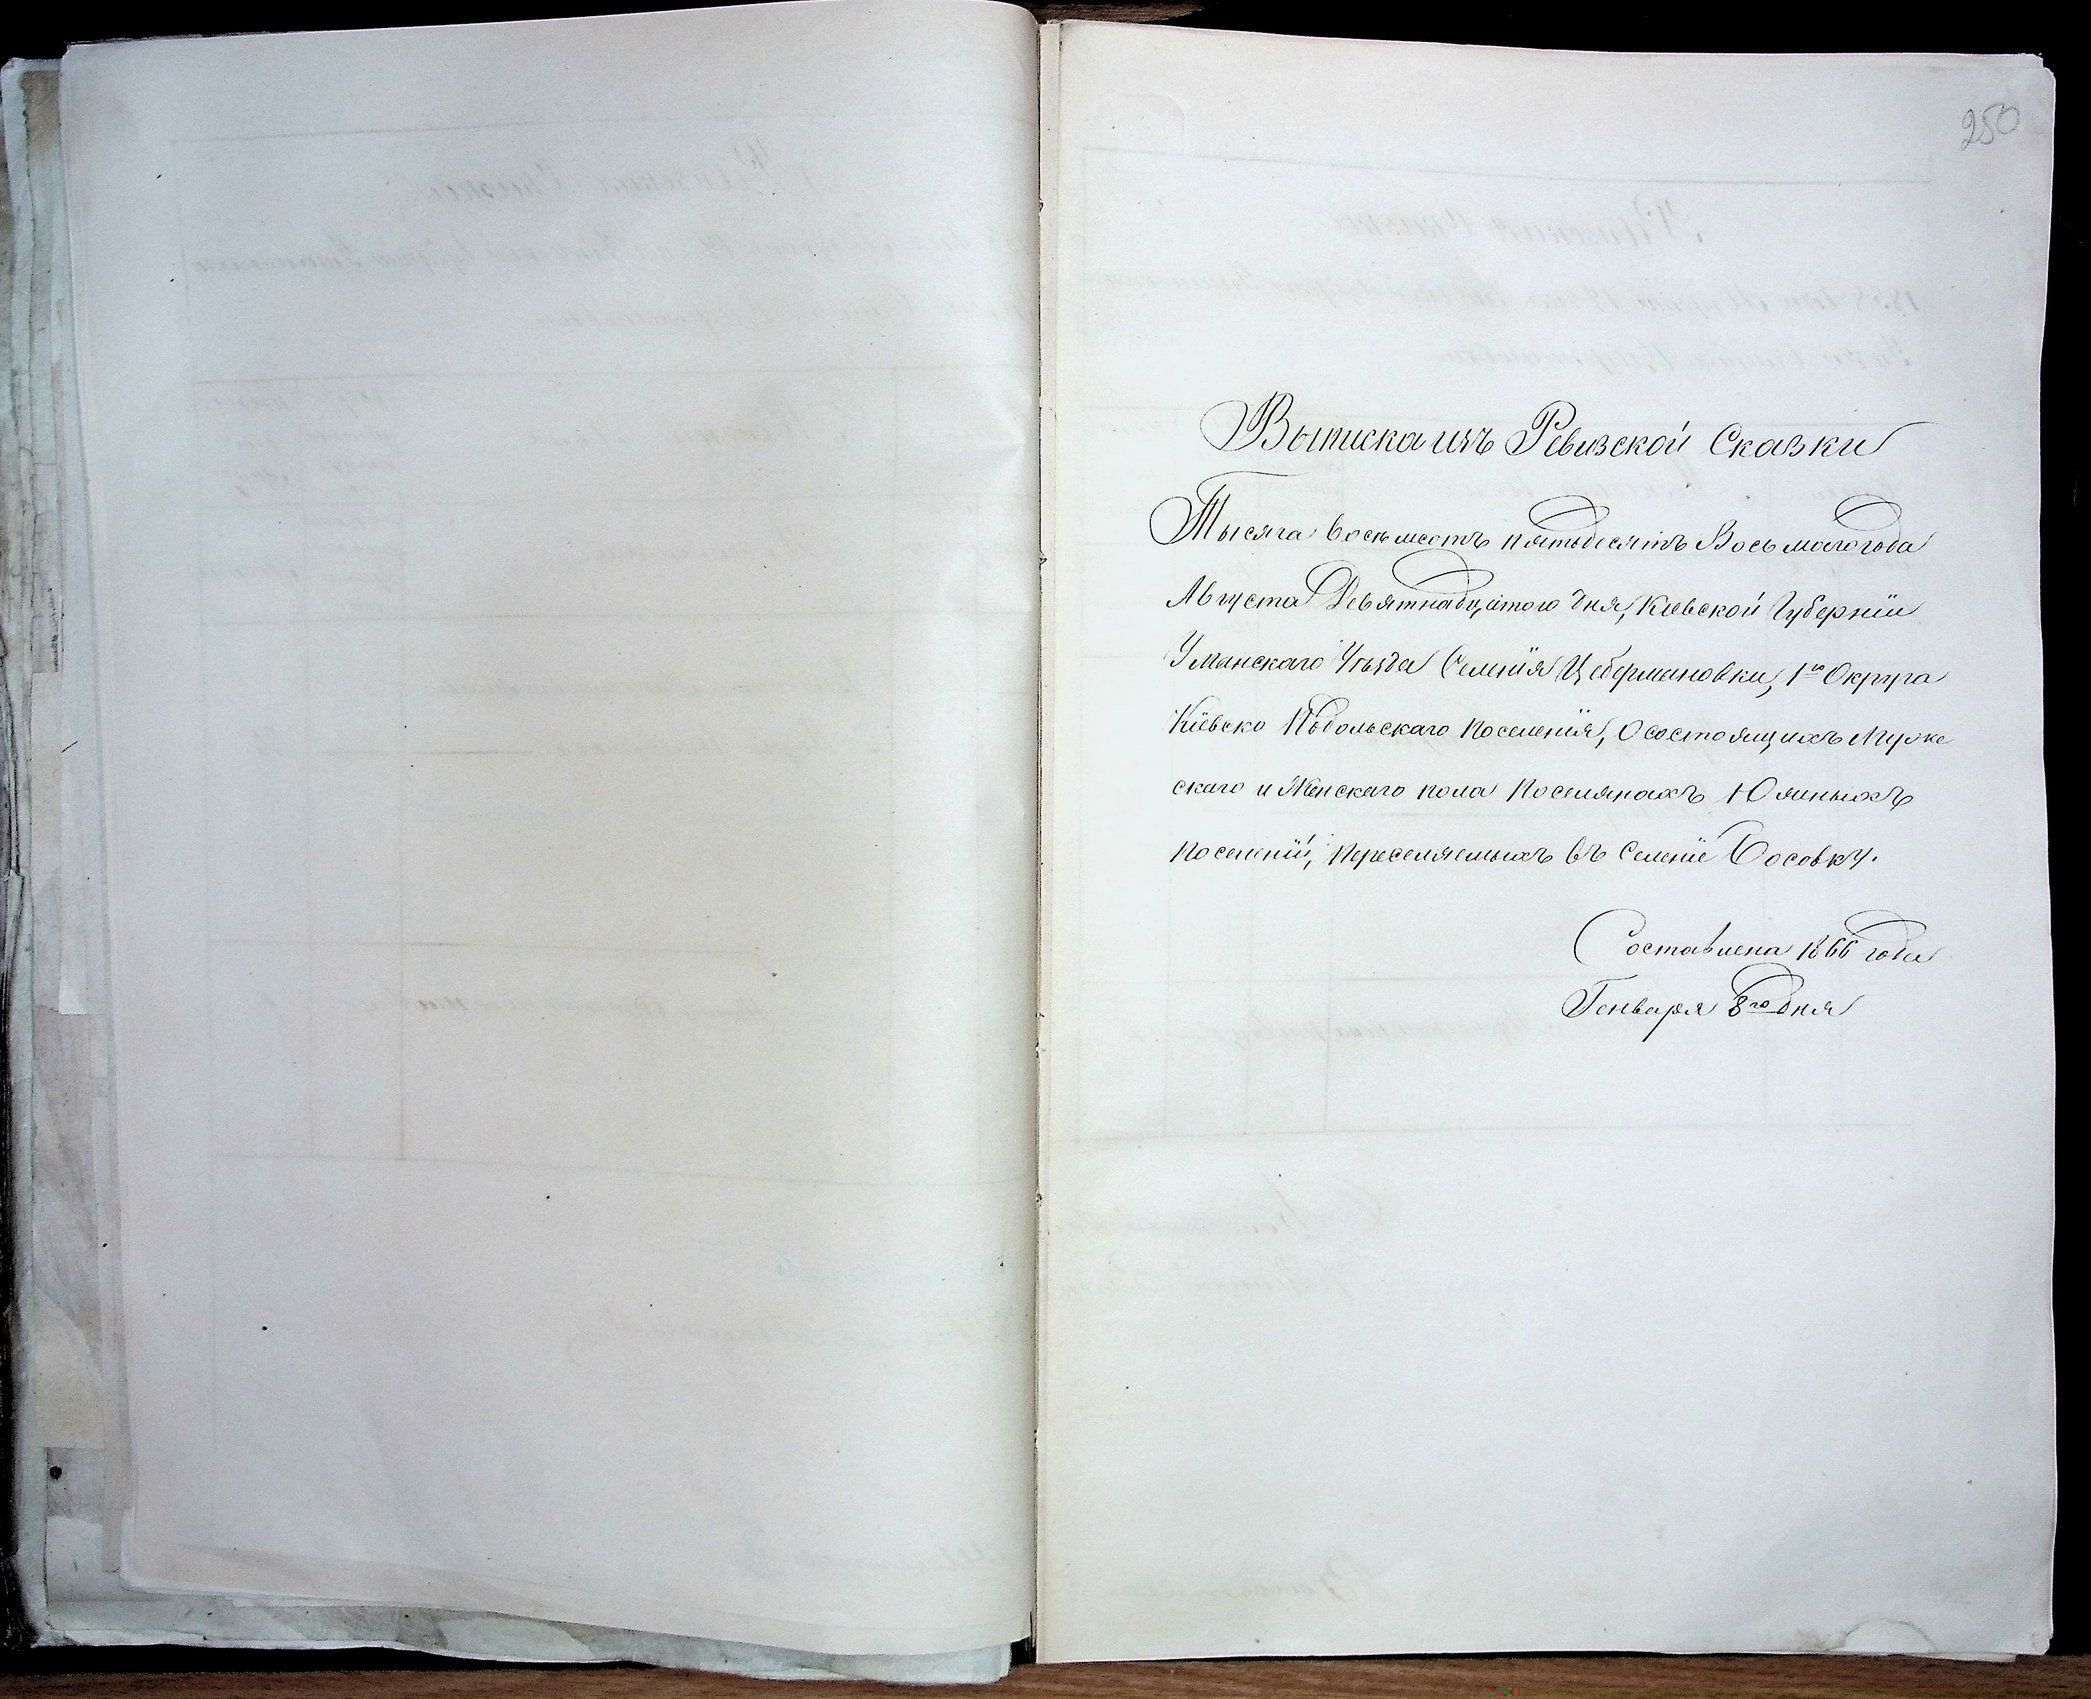 250
Выписка изъ Ревизской Сказки
Тысяча восемьсотъ пятьдесятъ Восьмаго года
Августа Девятнадцатого дня, Кіевской Губерніи
Уманскаго Уѣзда Селенія Цебермановки, 1го Округа
Кіевско Подольскаго Поселенія, О состоящихъ Муже
скаго и Женскаго пола Поселянахъ Южныхъ
поселеній, переселяемыхъ въ селеніе Сосовку.
Составлена 1866 года
Генваря 8го дня